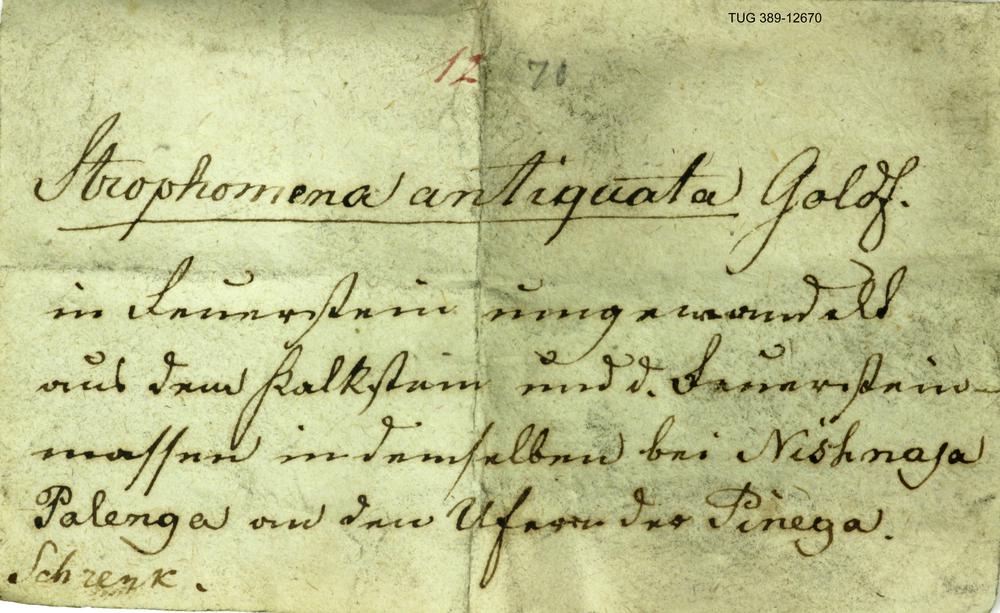 TUG 389-12670
12 71
Strophomena antiquata Goldf.
in Feuerstein umgewandelt
aus dem Kalkstein und d. Feuerstein-
massen in demselben bei Nishnaja
Palenga an den Ufern der Pinega.
Schrenk.